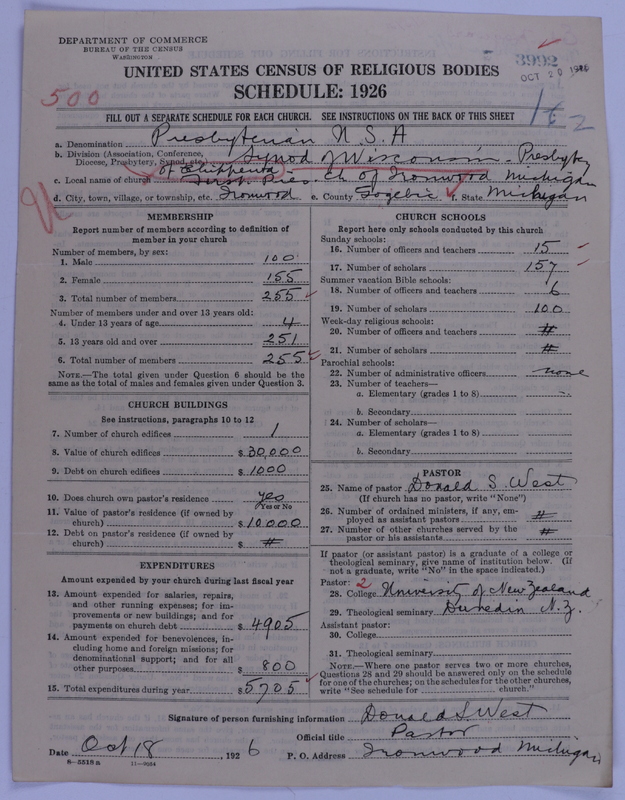 DEPARTMENT OF COMMERCE
BUREAU OF THE CENSUS
WASHINGTON
3992
OCT 20 1926
UNITED STATES CENSUS OF RELIGIOUS BODIES
SCHEDULE: 1926
500
FILL OUT A SEPARATE SCHEDULE FOR EACH CHURCH. SEE INSTRUCTIONS ON THE BACK OF THIS SHEET
a. Denomination Presbyterian U S A
b. Division (Association, Conference, Diocese, Presbytery, Synod, etc.) Synod of Wisconsin - Presbytery
of Chippewa
c. Local name of church First Pres. Ch of Ironwood Michigan
d. City, town, village, or township, etc. Ironwood e. County Gogebic f. State Michigan
MEMBERSHIP
Report number of members according to definition of
member in your church
Number of members, by sex:
1. Male 100
2. Female 155
3. Total number of members 255
Number of members under and over 13 years old:
4. Under 13 years of age 4
5. 13 years old and over 251
6. Total number of members 255
NOTE.—The total given under Question 6 should be the
same as the total of males and females given under Question 3.
CHURCH BUILDINGS
See instructions, paragraphs 10 to 12
7. Number of church edifices 1
8. Value of church edifices $ 30,000
9. Debt on church edifices $ 1000
10. Does church own pastor's residence yes
Yes or No
11. Value of pastor's residence (if owned by
church) $ 10000
12. Debt on pastor's residence (if owned by
church) $ #
EXPENDITURES
Amount expended by your church during last fiscal year
13. Amount expended for salaries, repairs,
and other running expenses; for im-
provements or new buildings; and for
payments on church debt $ 4905
14. Amount expended for benevolences, in-
cluding home and foreign missions; for
denominational support; and for all
other purposes $ 800
15. Total expenditures during year $ 5705
CHURCH SCHOOLS
Report here only schools conducted by this church
Sunday schools:
16. Number of officers and teachers 15
17. Number of scholars 157
Summer vacation Bible schools:
18. Number of officers and teachers 6
19. Number of scholars 100
Week-day religious schools:
20. Number of officers and teachers #
21. Number of scholars #
Parochial schools:
22. Number of administrative officers none
23. Number of teachers—
a. Elementary (grades 1 to 8)
b. Secondary
24. Number of scholars—
a. Elementary (grades 1 to 8)
b. Secondary
PASTOR
25. Name of pastor Donald S. West
(If church has no pastor, write "None")
26. Number of ordained ministers, if any, em-
ployed as assistant pastors #
27. Number of other churches served by the
pastor or his assistants #
If pastor (or assistant pastor) is a graduate of a college or
theological seminary, give name of institution below. (If
not a graduate, write "No" in the space indicated.)
Pastor: 2
28. College University of New Zealand
29. Theological seminary Dunedin N.Z.
Assistant pastor:
30. College
31. Theological seminary
NOTE.—Where one pastor serves two or more churches,
Questions 28 and 29 should be answered only on the schedule
for one of the churches; on the schedules for the other churches,
write "See schedule for church."
Signature of person furnishing information Donald S West
Official title Pastor
Date Oct 18, 1926 P. O. Address Ironwood Michigan
8—5518a 11—9684